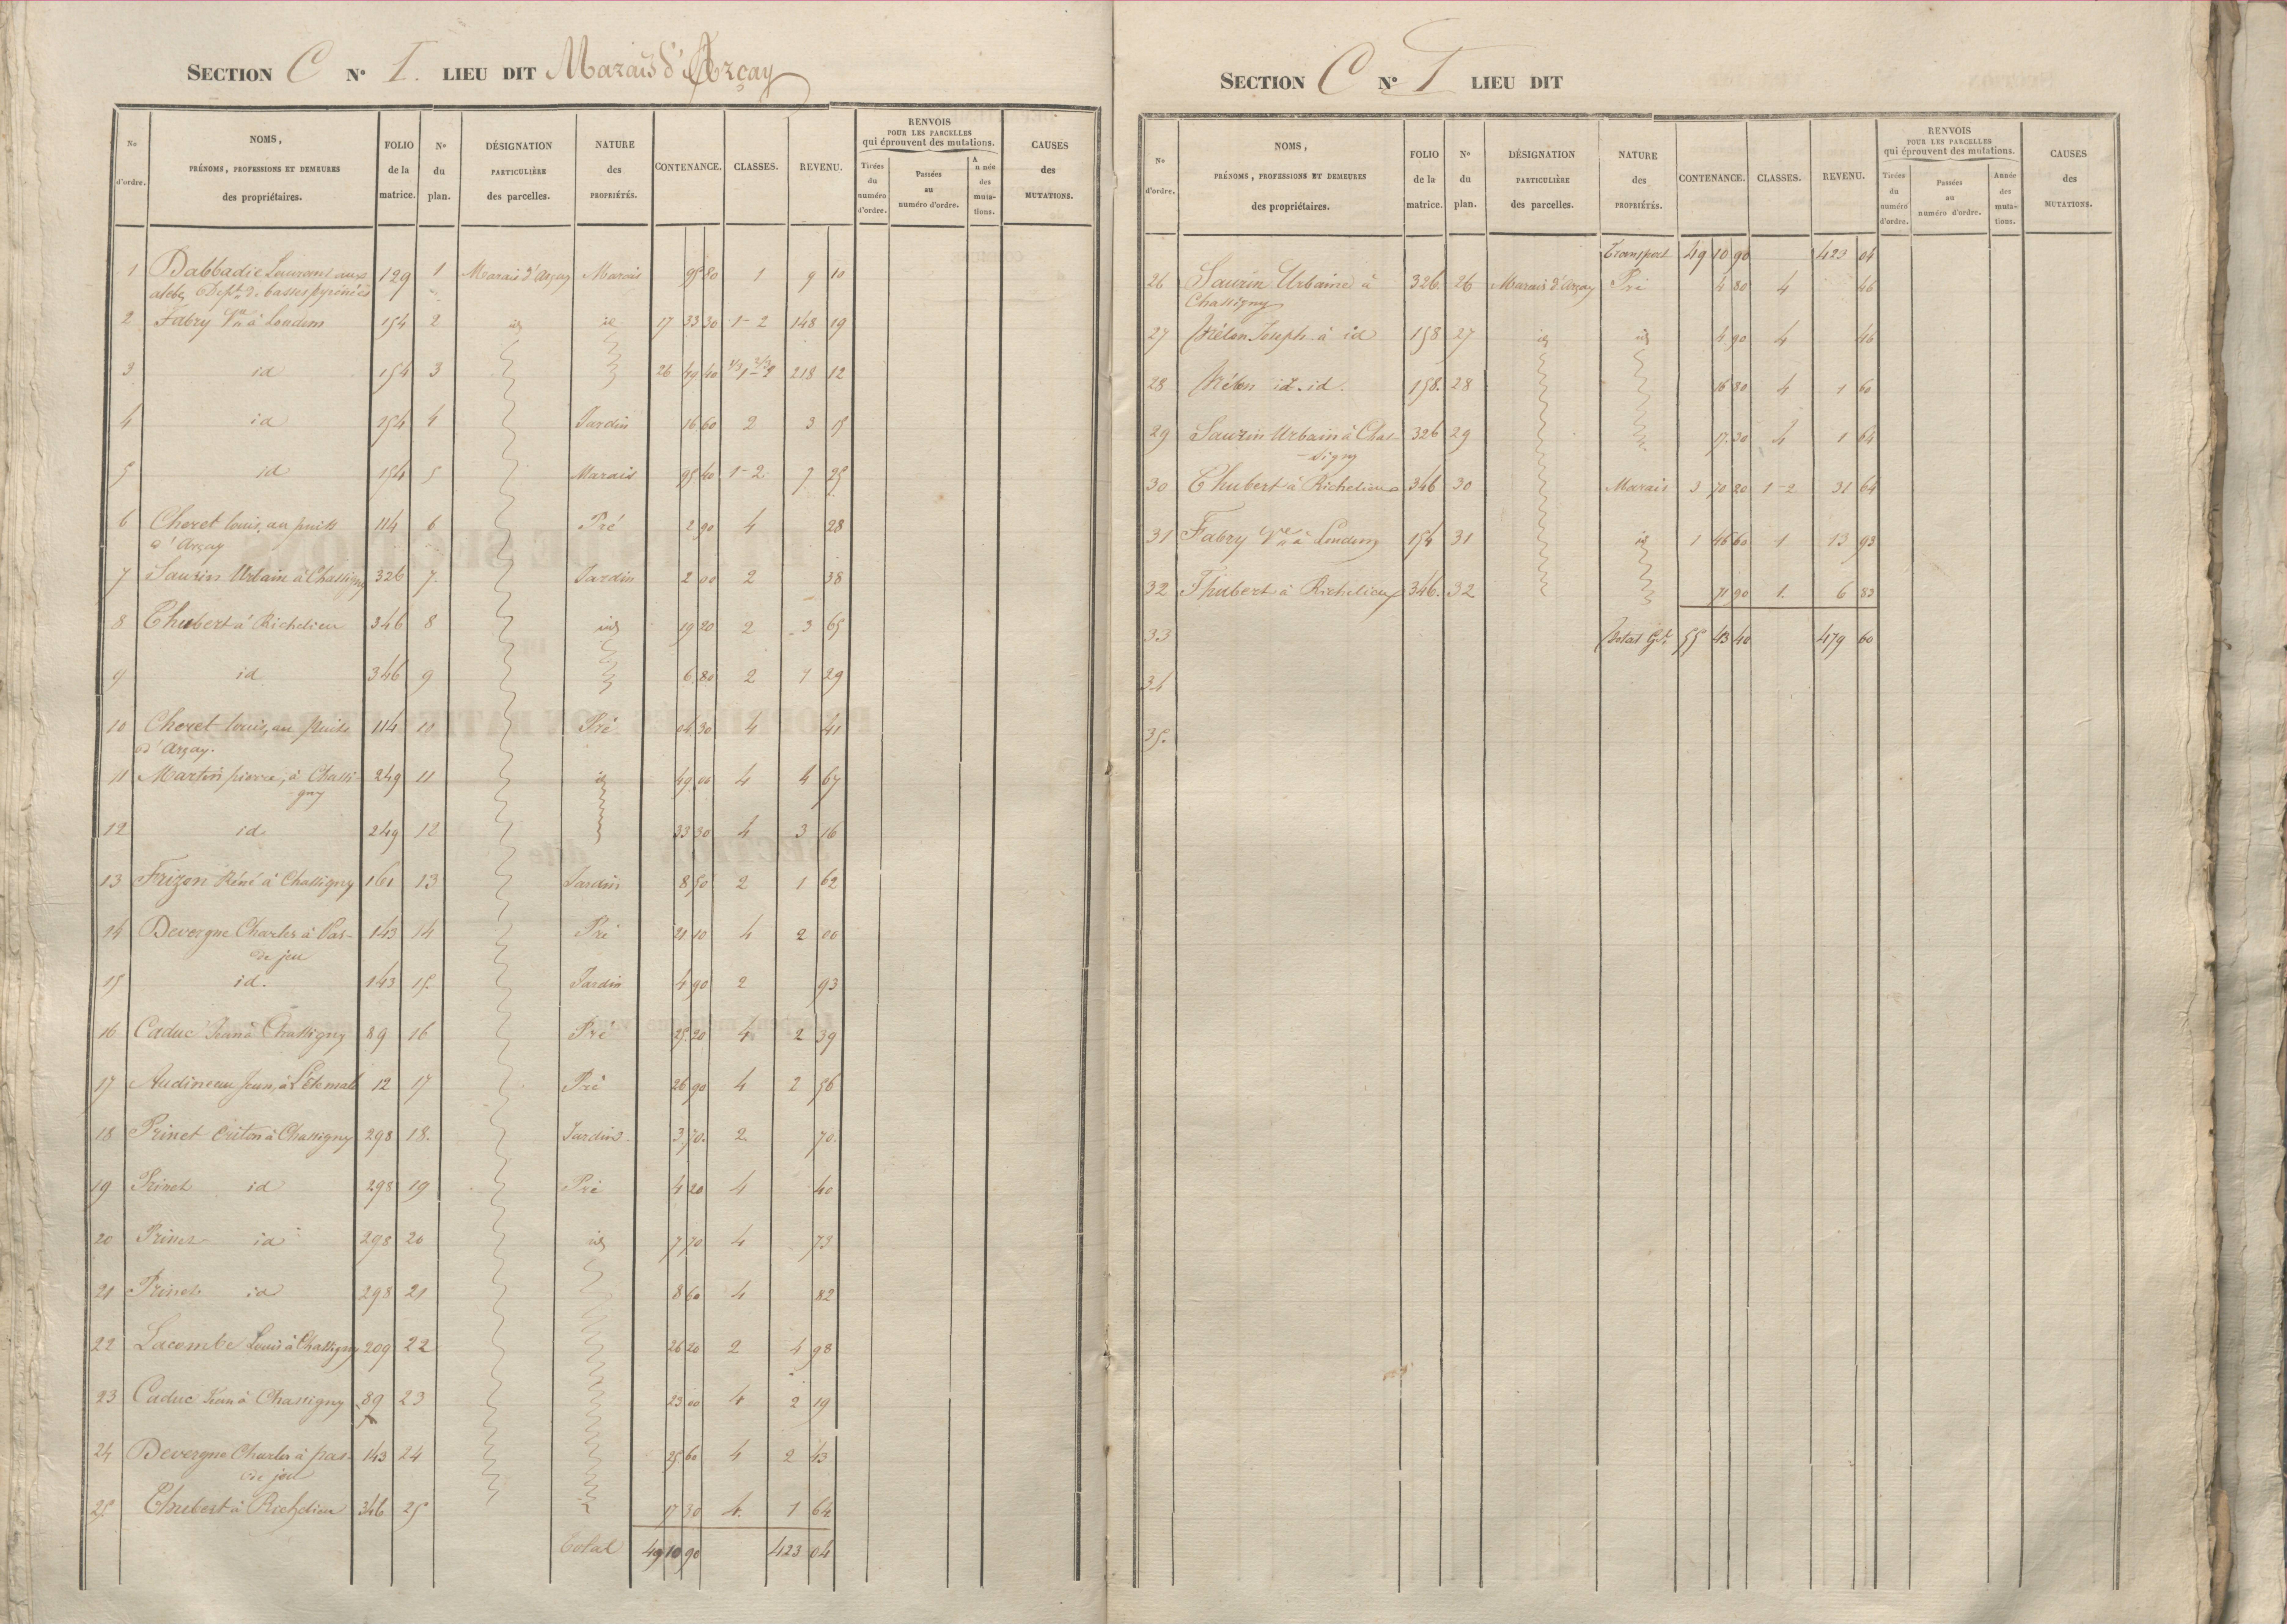 SECTION C N° I. LIEU DIT Marais d'Arçay
No d'ordre. NOMS, PRÉNOMS, PROFESSIONS ET DEMEURES des propriétaires. FOLIO de la matrice. N° du plan. DÉSIGNATION PARTICULIÈRE des parcelles. NATURE des PROPRIÉTÉS. CONTENANCE. CLASSES. REVENU. RENVOIS POUR LES PARCELLES qui éprouvent des mutations. Tirées du numéro d'ordre. Passées au numéro d'ordre. Année des mutations. CAUSES des MUTATIONS.
1 Dabbadie Laurent aux 129 1 Marais d'Arçay Marais 95 80 1 9 10
Dept. des basses pyrénées
2 Fabry Vve à Loudun 154 2 id id 17 33 30 1-2 148 19
3 id 154 3 26 49 40 1/3 1 - 2/3 2 218 12
4 id 154 4 Jardin 16 60 2 3 15
5 id 154 5 Marais 95 40 1-2 7 25
6 Cheret louis, au puits 114 6 Pré 2 90 4 28
d'Arçay
7 Saurin Urbain à Chassigny 326 7 Jardin 2 00 2 38
8 Thubert à Richelieu 346 8 id 19 20 2 3 65
9 id 346 9 6 80 2 1 29
10 Cheret louis, au puits 114 10 Pré 04 30 4 41
d'Arçay.
11 Martin pierre, à Chassi- 249 11 id 49 00 4 4 67
gny
12 id 249 12 33 30 4 3 16
13 Frizon Réné à Chassigny 161 13 Jardin 8 50 2 1 62
14 Devergne Charles à Pas- 143 14 Pré 21 10 4 2 00
de jeu
15 id. 143 15. Jardin 4 90 2 93
16 Caduc Jean à Chassigny 89 16 Pré 25 20 4 2 39
17 Audineau Jean, à 12 17 Pré 26 90 4 2 56
18 Prinet à Chassigny 298 18. Jardin 3 70. 2 70.
19 Prinet id 298 19 Pré 4 20 4 40
20 Prinet id 298 20 id 7 70 4 73
21 Prinet id 298 21 8 60 4 82
22 Lacombe Louis à Chassigny 209 22 26 20 2 4 98
23 Caduc Jean à Chassigny 89 23 23 00 4 2 19
24 Devergne Charles à pas- 143 24 25 60 4 2 43
de jeu
25 Thubert à Richelieu 346 25 17 30 4. 1 64
Total 49 10 90 423 04
SECTION C N° I LIEU DIT
N° d'ordre. NOMS, PRÉNOMS, PROFESSIONS ET DEMEURES des propriétaires. FOLIO de la matrice. N° du plan. DÉSIGNATION PARTICULIÈRE des parcelles. NATURE des PROPRIÉTÉS. CONTENANCE. CLASSES. REVENU. RENVOIS POUR LES PARCELLES qui éprouvent des mutations. Tirées du numéro d'ordre. Passées au numéro d'ordre. Année des mutations. CAUSES des MUTATIONS.
Transport 49 10 90 423 04
26 Saurin Urbain à 326 26 Marais d'Arçay Pré 4 80 4 46
Chassigny
27 Joseph à id 158 27 id id 4 90 4 46
28 id. id. 158. 28 16 80 4 1 60
29 Saurin Urbain à Chas- 326 29 17 30 4 1 64
-signy
30 Thubert à Richelieu 346 30 Marais 3 70 20 1-2 31 64
31 Fabry Vve à Loudun 154 31 id 1 46 60 1 13 93
32 Thubert à Richelieu 346. 32 71 90 1. 6 83
33 Total Gal. 55 43 40 479 60
34
35.